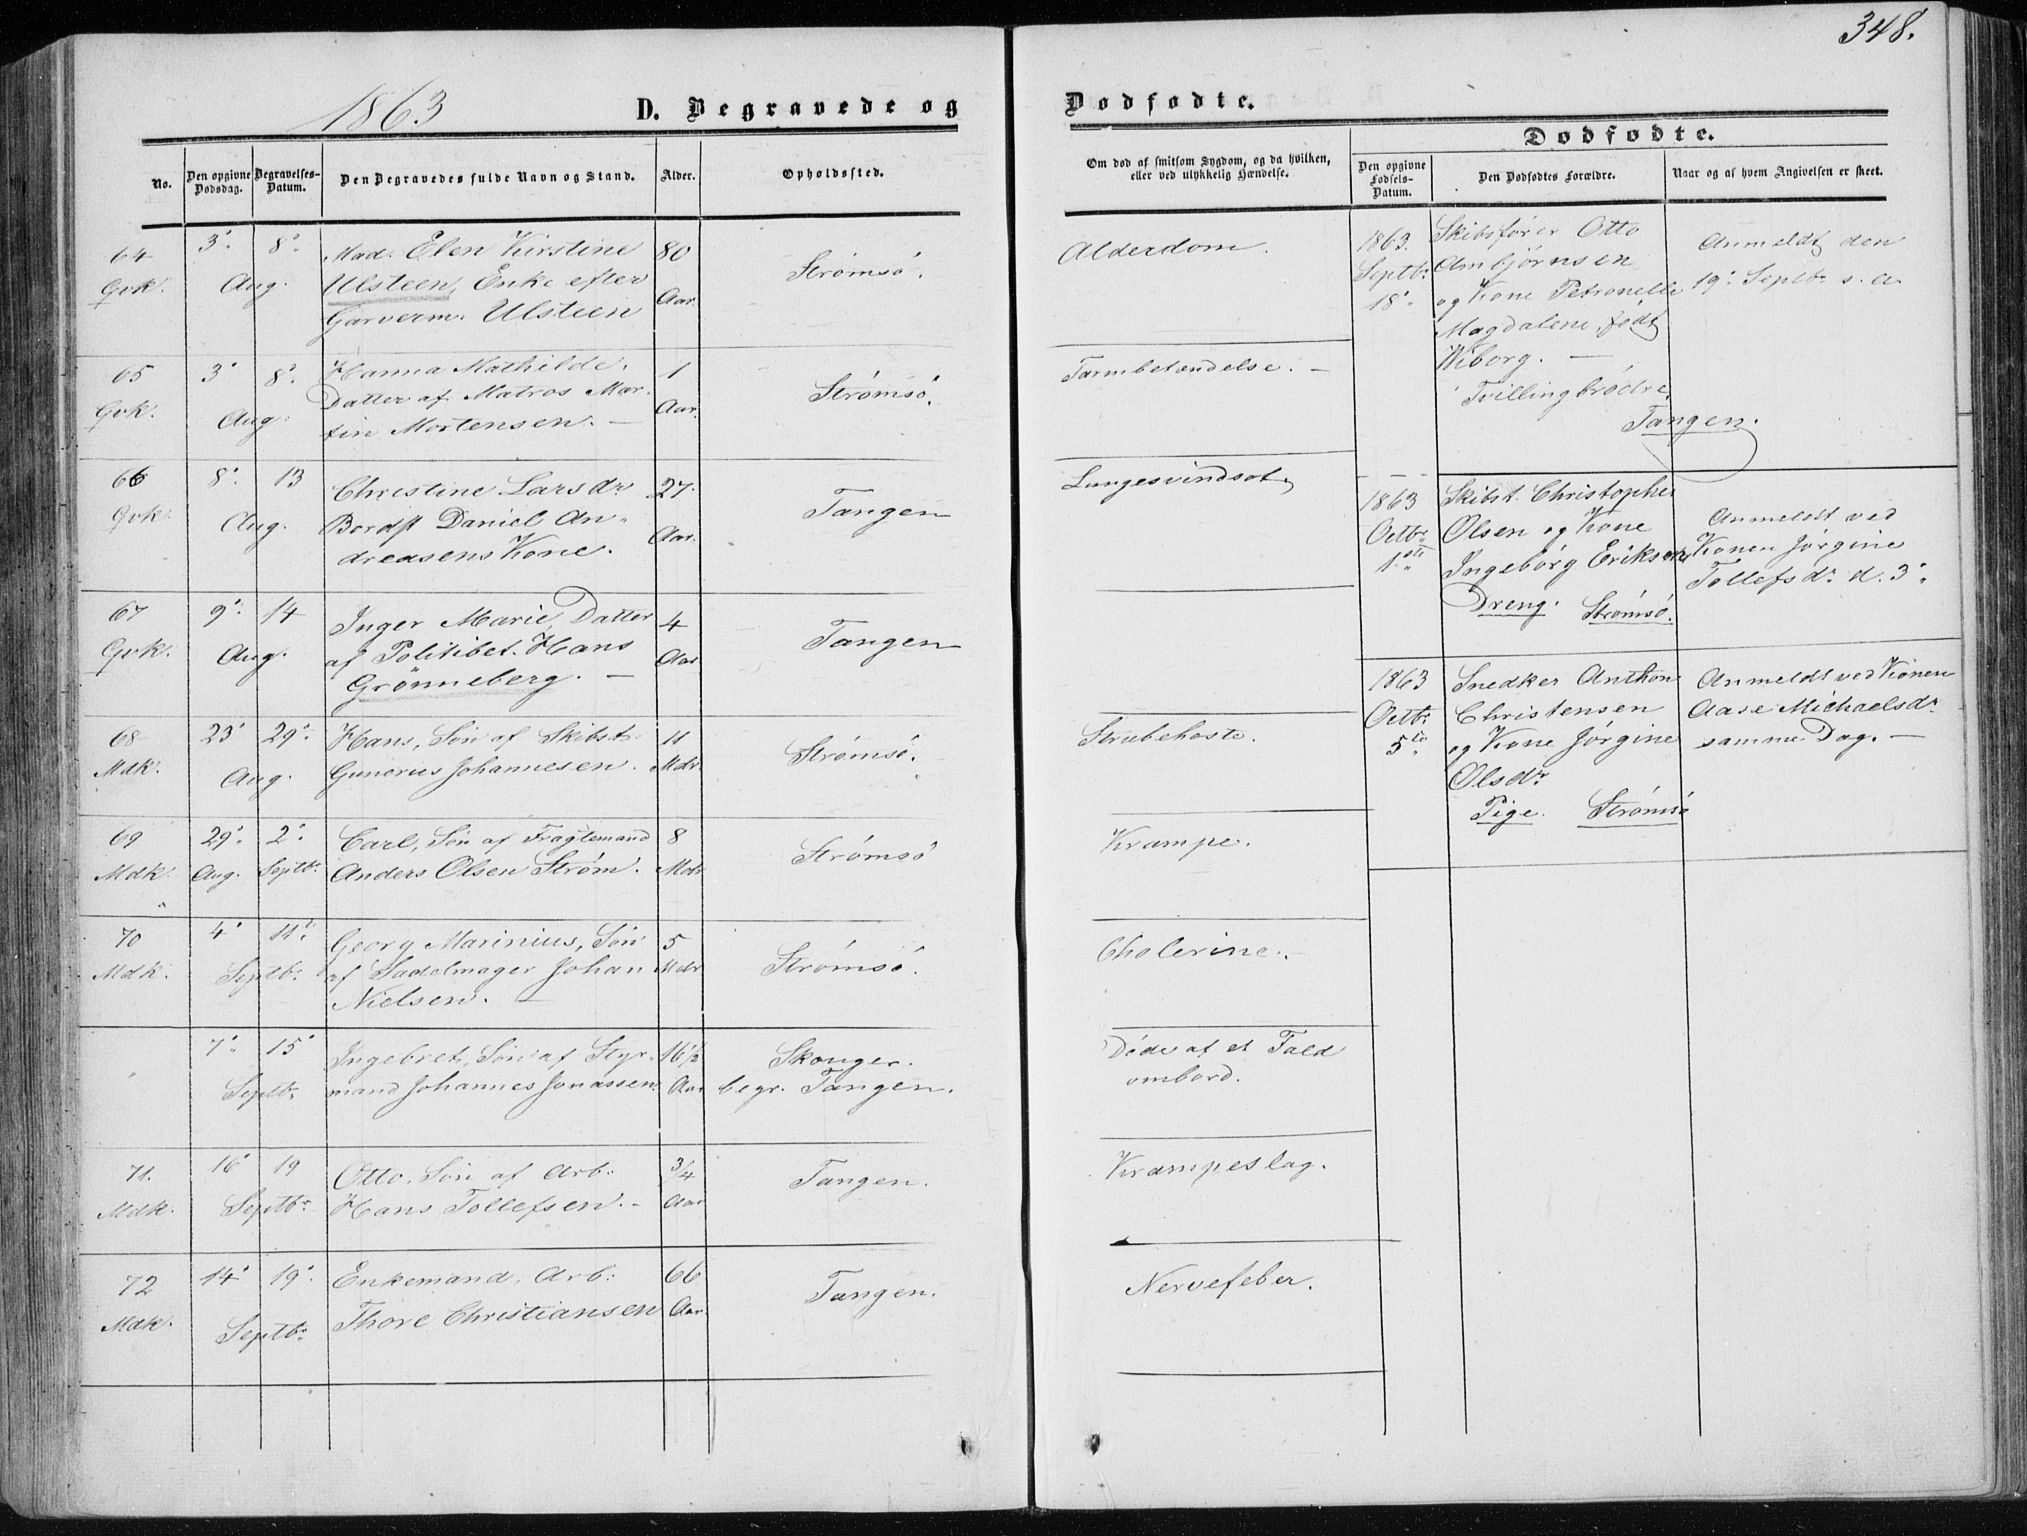 348.
1863 D. Begravede og Dødfødte.
No. Den opgivne Dødsdag. Begravelses-Datum. Den Begravedes fulde Navn og Stand. Alder. Opholdssted.
Om død af smitsom Sygdom, og da hvilken, eller ved ulykkelig Hændelse.
Dødfødte.
Den opgivne Fødsels-Datum. Den Dødfødtes Forældre. Naar og af hvem Angivelsen er skeet.
64 3. 8. Mad. Elen Kirstine 80
Qvk. Aug. Ulsteen, Enke efter Aar. Strømsö.
Garverm. Ulsteen
Alderdom.
65 3. 8. Hanna Mathilde, 1
Qvk. Aug. Datter af Matros Mar- Aar. Strømsö.
tin Mortensen. —
Tarmbetændelse. —
66 8. 13 Christine Larsdr 27.
Qvk. Aug. Bordst Daniel An- Aar. Tangen
dreasens Kone.
Lungesvindsot
67 9. 14 Inger Marie, Datter 4
Qvk. Aug. af Politibet. Hans Aar Tangen
Grönneberg. —
68 23 29. Hans, Sön af Skibst. 11
Mdk. Aug. Gunerus Johannesen. Mdr. Strømsó.
Strubehoste.
69 29. 2. Carl, Sön af Fragtemand 8
Mdk. Aug. Septbr. Anders Olsen Ström. Mdr Strømsö
Krampe.
70 4. 11. Georg Marinius, Sön 5
Mdk. Septbr. af Sadelmager Johan Mdr Strømsó.
Nielsen. —
Cholerine. —
7. 15 Ingebret, Sön af Styr- 16 1/2 Skouger.
Septbr. mand Johannes Jonassen. Aar begr. Tangen.
Döde af et Fald
ombord.
71. 16 19 Otto, Sön af Arb. 3/4
Mdk. Septbr. Hans Tollefsen. — Aar Tangen.
Krampeslag.
72 14 19. Enkemand, Arb. 66
Mdk. Septbr. Thore Christiansen Aar. Tangen.
Nervefeber.
1863. Skibsförer Otto Anmeldt den
Septbr. Ambjörnsen 19. Septbr. s. a.
18. og Kone Petronelle
Magdalene, födt
Wiborg. —
Tvillingbrödre.
Tangen.
1863 Skibst. Christopher Anmeldt ved
Octbr. Olsen og Kone Konen Jörgine
1ste Ingebörg Eriksen Tollefsdr. d. 3.
Dreng. Strømsó.
1863 Snedker Anthon Anmeldt ved Konen
Octbr. Christensen Aase Michaelsdr.
5te og Kone Jörgine samme Dag. —
Olsdr
Pige. Strømsó